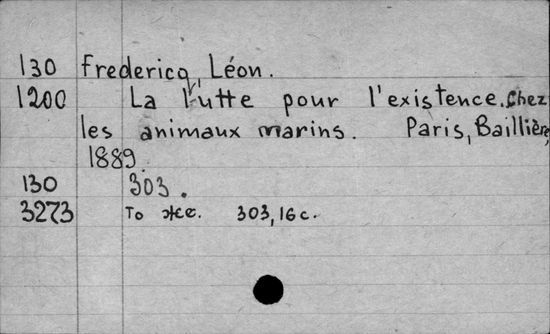 130 Fredericq, Léon.
1200 La lutte pour l'existence. Chez
les animaux marins. Paris, Baillière,
1889.
130 303.
3273 То же. 303, 16 с.